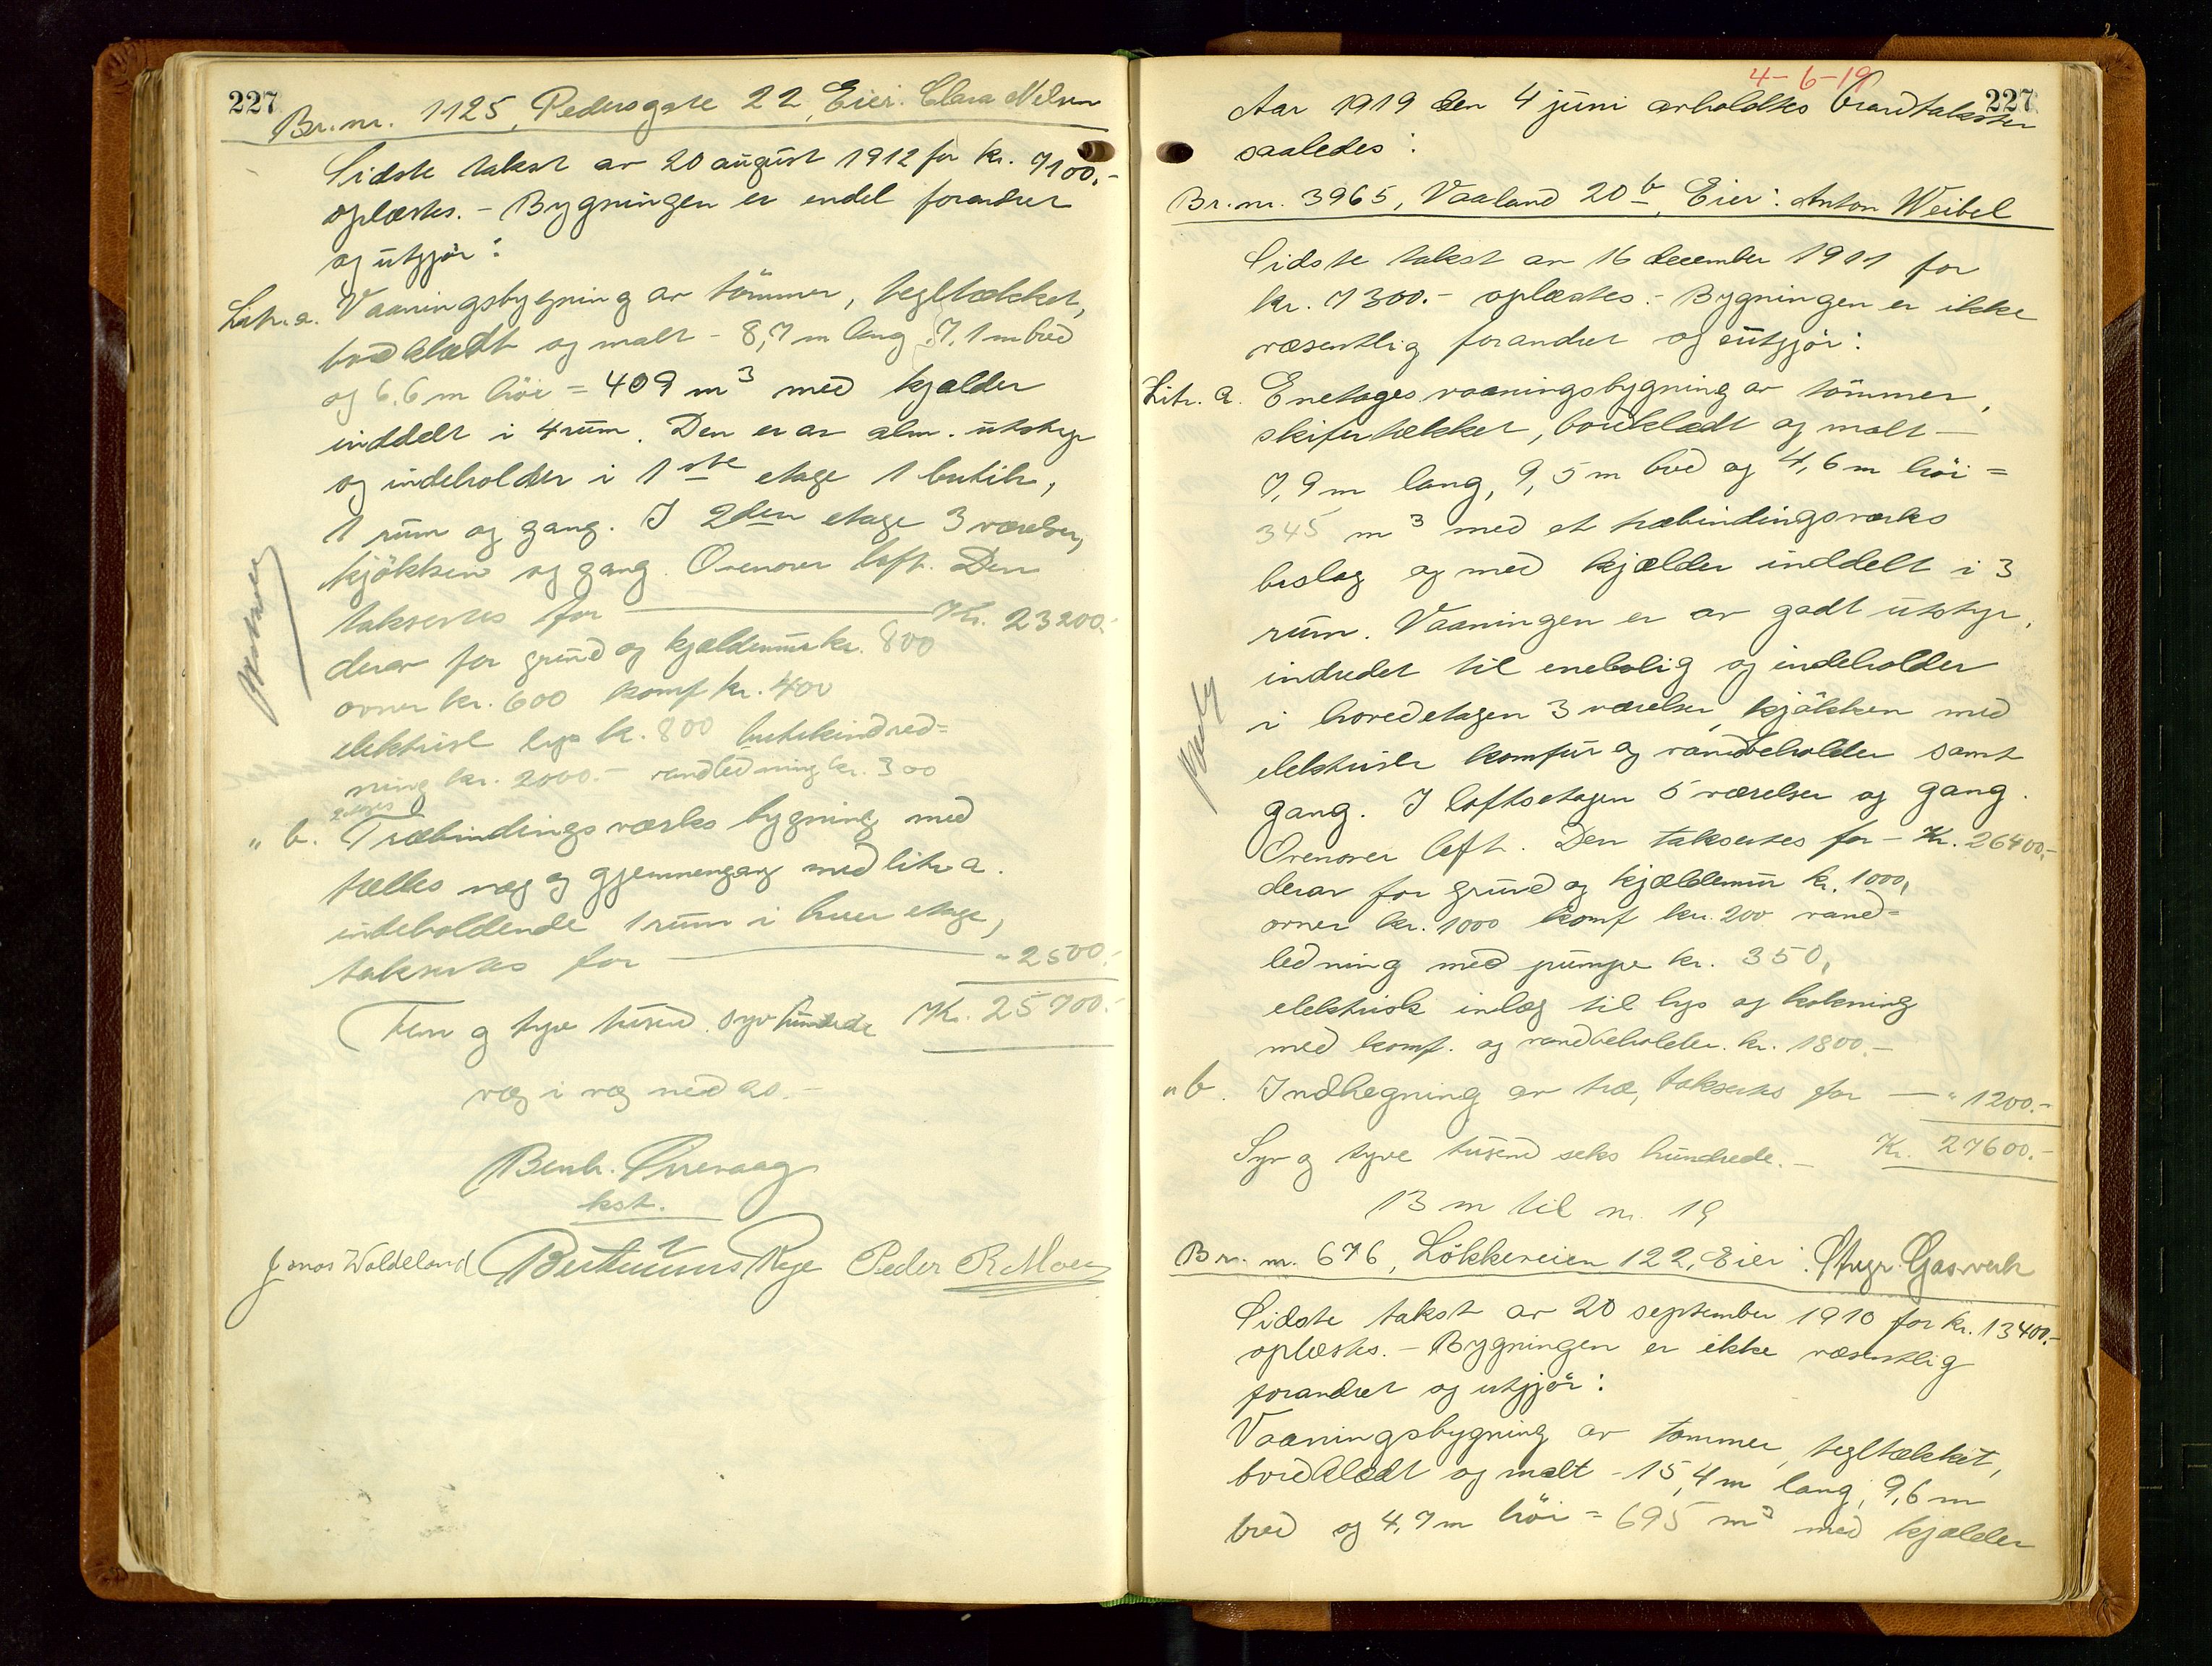 227
Br.nr. 1125, Pedersgate 22, Eier: Clara Nelson
Sidste takst av 20 august 1912 for kr. 7100.-
oplæstes. - Bygningen er endel forandret
og utgjør:
Litr. a. Vaaningsbygning av tømmer, tegltækket,
bordklædt og malt - 8,7 m lang 7,1 m bred
og 6,6 m høi = 409 m³ med kjælder
inddelt i 4 rum. Den er av alm. utstyr
og indeholder i 1ste etage 1 butik,
1 rum og gang. I 2den etage 3 værelser,
kjøkken og gang. Ovenover loft. Den
taksertes for Kr. 23200.-
derav for grund og kjældermur kr. 800
ovner kr. 600 komf kr. 400
elektrisk lys kr. 800 butikindred=
ning kr. 2000.- vandledning kr. 300
2 etages
" b. Træbindingsværks bygning med
fælles væg og gjennemgang med litr a.
indeholdende 1 rum i hver etage,
taksertes for " 2500.-
Fem og tyve tusend syv hundrede Kr. 25700.-
væg i væg med 20.-
Bernh. Øirevaag
kst.
Jonas Waldeland Bertinius Rege Peder R. Moen
4-6-19
227
Aar 1919 den 4 juni avholdtes brandtakster
saaledes:
Br.nr. 3965, Vaaland 20 b, Eier: Anton Weibel
Sidste takst av 16 december 1911 for
kr. 7300.- oplæstes. - Bygningen er ikke
væsentlig forandret og utgjør:
Litr. a. Enetages vaaningsbygning av tømmer,
skifertækket, bordklædt og malt -
7,9 m lang, 9,5 m bred og 4,6 m høi =
345 m³ med et træbindingsværks
bislag og med kjælder inddelt i 3
rum. Vaaningen er av godt utstyr,
indredet til enebolig og indeholder
i hovedetagen 3 værelser, kjøkken med
elektrisk komfur og vandbeholder samt
gang. I loftsetagen 5 værelser og gang.
Ovenover loft. Den taksertes for - Kr. 26400.-
derav for grund og kjældermur kr. 1000,
ovner kr. 1000 komf kr. 200 vand=
ledning med pumpe kr. 350,
elektrisk inlæg til lys og kokning
med komf. og vandbeholder kr. 1800.-
" b. Indhegning av træ, taksertes for - " 1200.-
Syv og tyve tusend seks hundrede.- Kr. 27600.-
13 m til nr. 19
Br. nr. 676, Løkkeveien 122, Eier: Stvgr. Gasverk
Sidste takst av 20 september 1910 for kr. 13400.-
oplæstes. - Bygningen er ikke væsentlig
forandret og utgjør:
Vaaningsbygning av tømmer, tegltækket,
bordklædt og malt - 15,4 m lang, 9,6 m
bred og 4,7 m høi = 695 m³ med kjælder